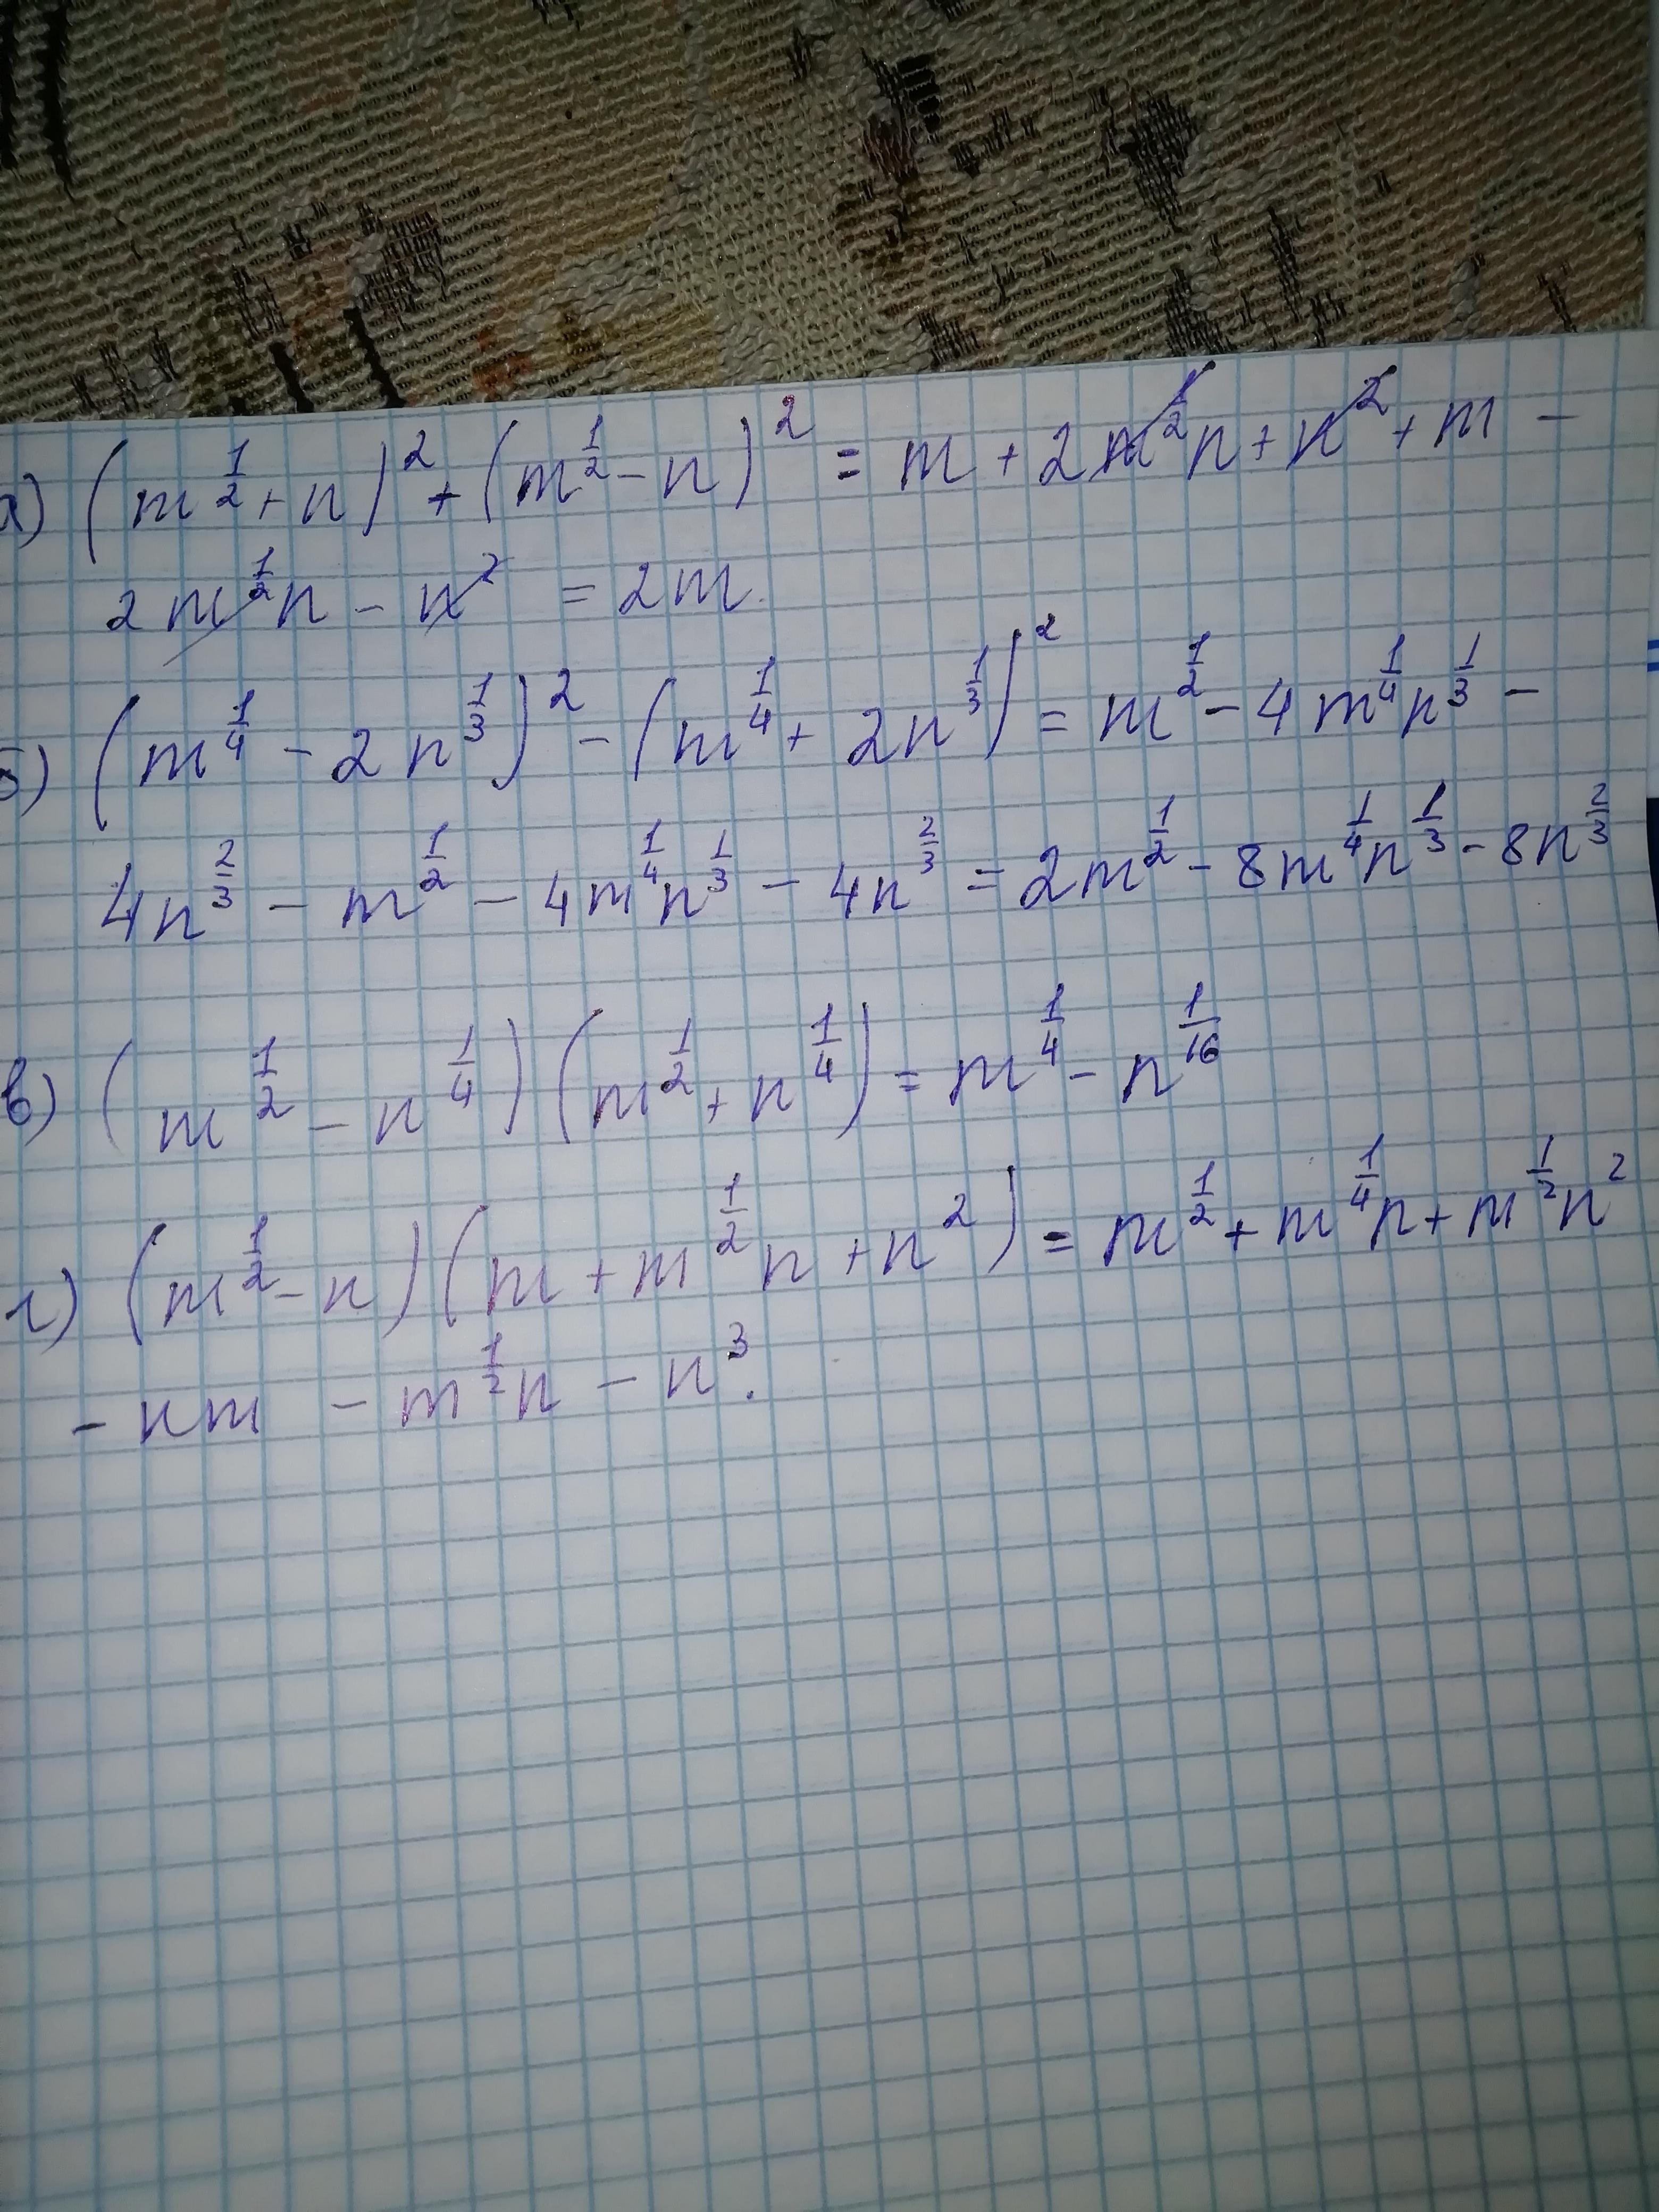 а) (m^{1/2} + n)^2 + (m^{1/2} - n)^2 = m + 2m^{1/2}n + n^2 + m -
2m^{1/2}n - n^2 = 2m.
б) (m^{1/4} - 2n^{1/3})^2 - (m^{1/4} + 2n^{1/3})^2 = m^{1/2} - 4m^{1/4}n^{1/3} -
4n^{2/3} - m^{1/2} - 4m^{1/4}n^{1/3} - 4n^{2/3} = 2m^{1/2} - 8m^{1/4}n^{1/3} - 8n^{2/3}
в) (m^{1/2} - n^{1/4})(m^{1/2} + n^{1/4}) = m^{1/4} - n^{1/16}
г) (m^{1/2} - n)(m + m^{1/2}n + n^2) = m^{1/2} + m^{1/4}n + m^{1/2}n^2
- nm - m^{1/2}n - n^3.